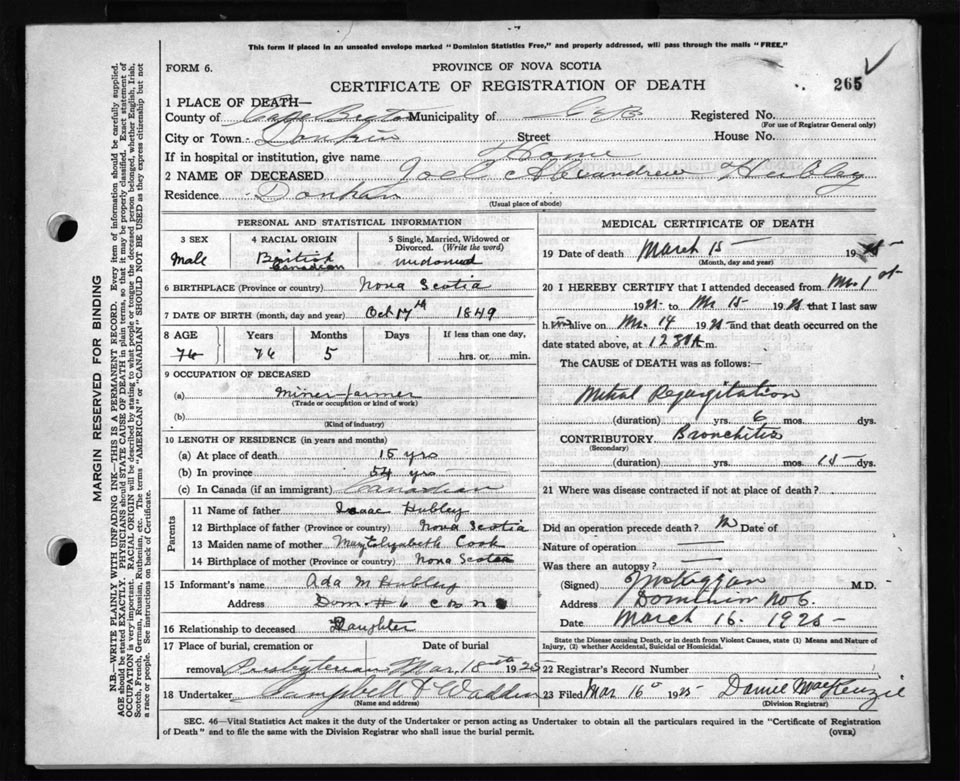 This form if placed in an unsealed envelope marked "Dominion Statistics Free," and properly addressed, will pass through the mails "FREE."
FORM 6.
PROVINCE OF NOVA SCOTIA
CERTIFICATE OF REGISTRATION OF DEATH
265
1 PLACE OF DEATH—
County of Cape Breton Municipality of C B Registered No.
(For use of Registrar General only)
City or Town Donkin Street House No.
If in hospital or institution, give name Home
2 NAME OF DECEASED Joel Alexandrew Hubley
Residence Donkin
(Usual place of abode)
PERSONAL AND STATISTICAL INFORMATION
3 SEX
Male
4 RACIAL ORIGIN
British Canadian
5 Single, Married, Widowed or Divorced. (Write the word)
widowed
6 BIRTHPLACE (Province or country) Nova Scotia
7 DATE OF BIRTH (month, day and year) Oct 17th 1849
8 AGE Years Months Days If less than one day,
76 76 5 hrs. or min.
9 OCCUPATION OF DECEASED
(a) miner-farmer
(Trade or occupation or kind of work)
(b)
(Kind of industry)
10 LENGTH OF RESIDENCE (in years and months)
(a) At place of death 15 yrs
(b) In province 54 yrs
(c) In Canada (if an immigrant) Canadian
Parents
11 Name of father Isaac Hubley
12 Birthplace of father (Province or country) Nova Scotia
13 Maiden name of mother Mary Elizabeth Cook
14 Birthplace of mother (Province or country) Nova Scotia
15 Informant's name Ada M Hubley
Address Dom. #6 C B N S
16 Relationship to deceased Daughter
17 Place of burial, cremation or
removal Presbyterian Mar. 18th 1925
18 Undertaker Campbell & Wadden
(Name and address)
MEDICAL CERTIFICATE OF DEATH
19 Date of death March 15 1925
(Month, day and year)
20 I HEREBY CERTIFY that I attended deceased from Mr. 1st
1925 to Mr 15 1925 that I last saw
him alive on Mr. 14 1925 and that death occurred on the
date stated above, at 12 30 A m.
The CAUSE of DEATH was as follows:—
Mitral Regurgitation
(duration) yrs. 6 mos. dys.
CONTRIBUTORY Bronchitis
(Secondary)
(duration) yrs. mos. 15 dys.
21 Where was disease contracted if not at place of death?
Did an operation precede death? Date of
Nature of operation
Was there an autopsy?
(Signed) M.D.
Address Dominion No 6.
Date March 16. 1925
State the Disease causing Death, or in death from Violent Causes, state (1) Means and Nature of Injury, (2) whether Accidental, Suicidal or Homicidal.
22 Registrar's Record Number
23 Filed Mar 16 1925 Daniel MacKenzie
(Division Registrar)
SEC. 46—Vital Statistics Act makes it the duty of the Undertaker or person acting as Undertaker to obtain all the particulars required in the "Certificate of Registration
of Death" and to file the same with the Division Registrar who shall issue the burial permit.
(OVER)
MARGIN RESERVED FOR BINDING
N.B.—WRITE PLAINLY WITH UNFADING INK—THIS IS A PERMANENT RECORD. Every item of information should be carefully supplied.
AGE should be stated EXACTLY. PHYSICIANS should STATE CAUSE OF DEATH in plain terms, so that it may be properly classified. Exact statement of
OCCUPATION is very important. RACIAL ORIGIN will be described by stating to what people or tongue the deceased person belonged, whether English, Irish,
Scotch, French, German, Russian, Ruthenian, etc. The terms "AMERICAN" or "CANADIAN" SHOULD NOT BE USED as they express citizenship but not
a race or people. See instructions on back of Certificate.